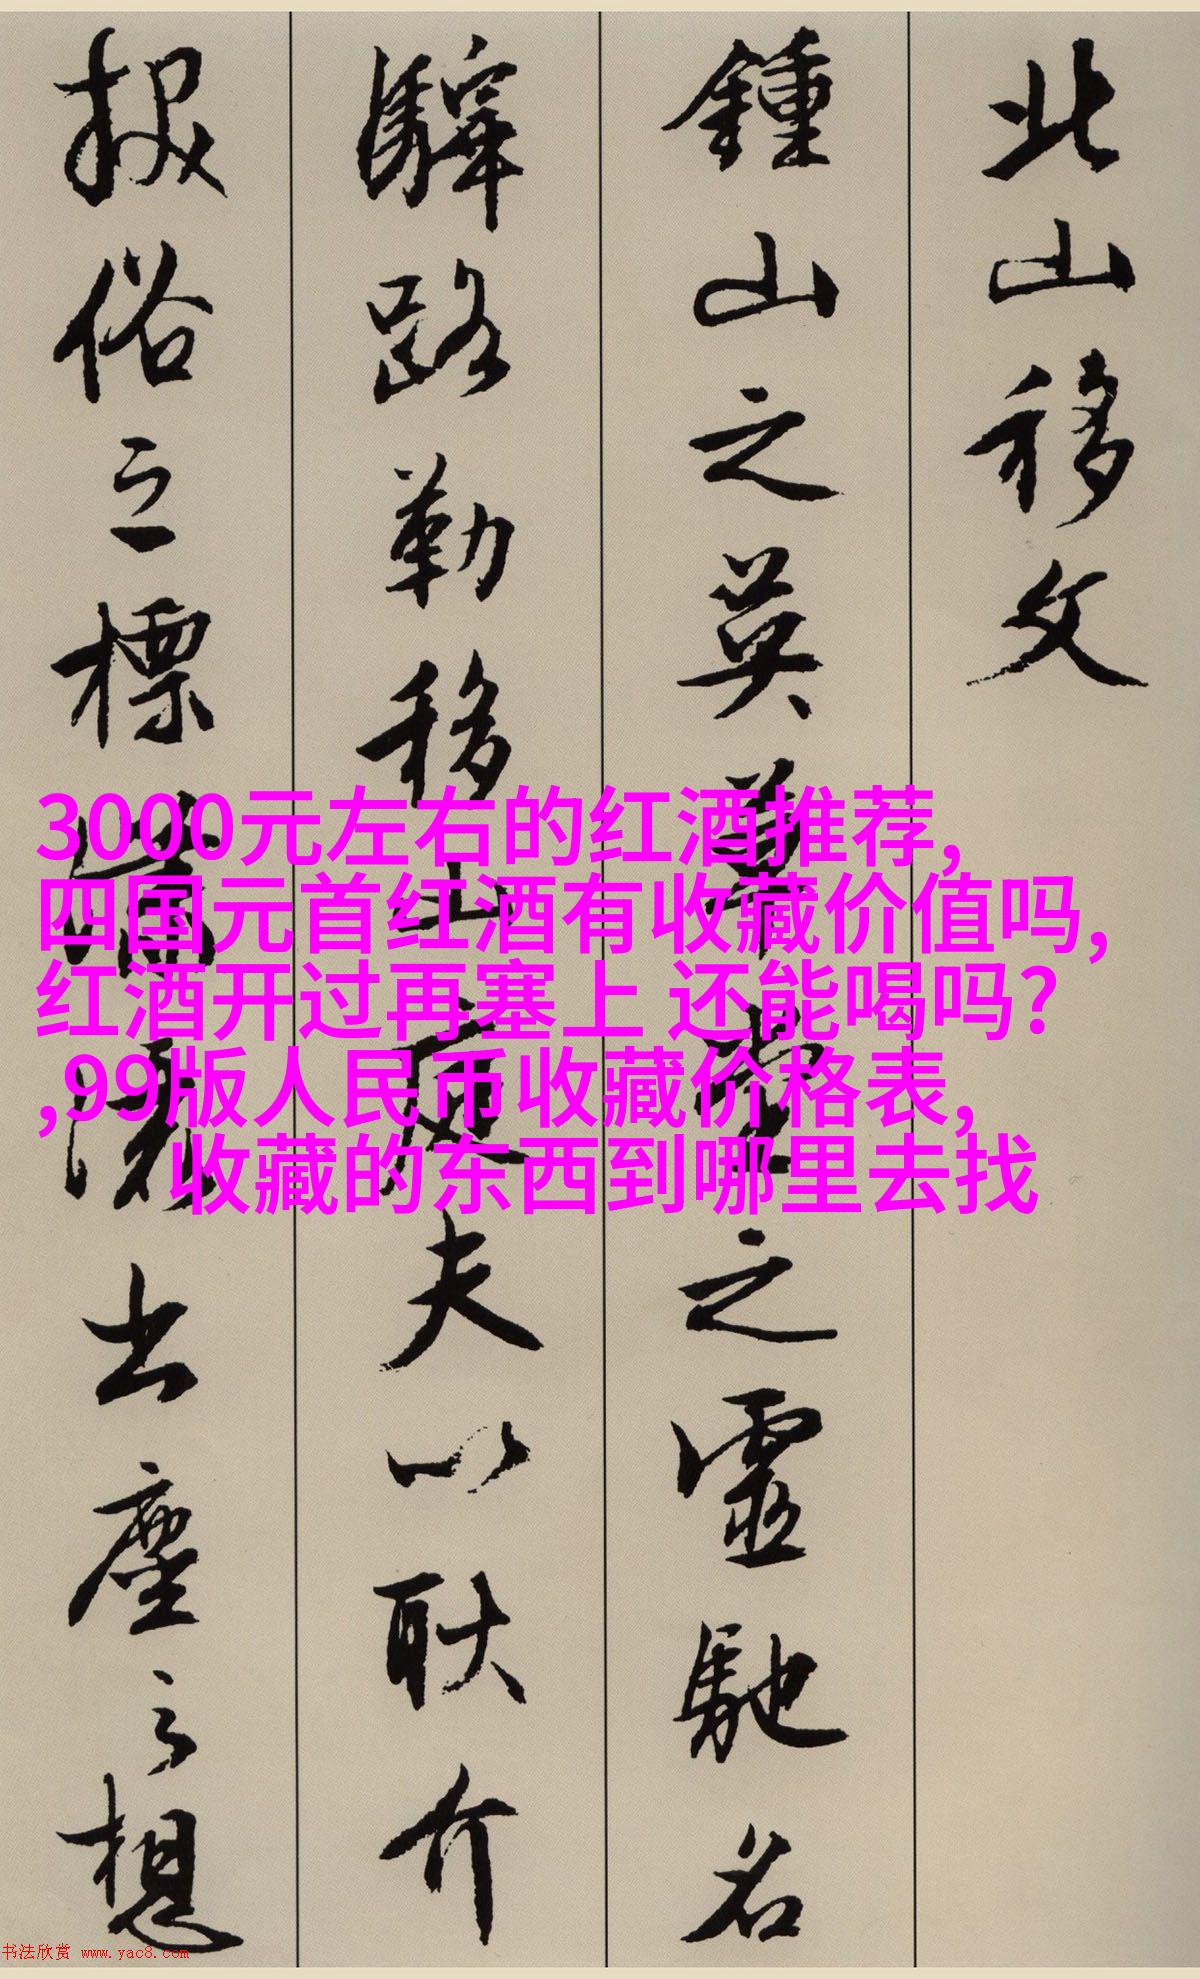 北山移文
鍾山之英草堂之靈馳名
驛路勒移山庭夫以耿介
拔俗之標瀟灑出塵之想
3000元左右的红酒推荐,
四国元首红酒有收藏价值吗,
红酒开过再塞上 还能喝吗?
,99版人民币收藏价格表,
收藏的东西到哪里去找
书法欣赏 www.yac8.com